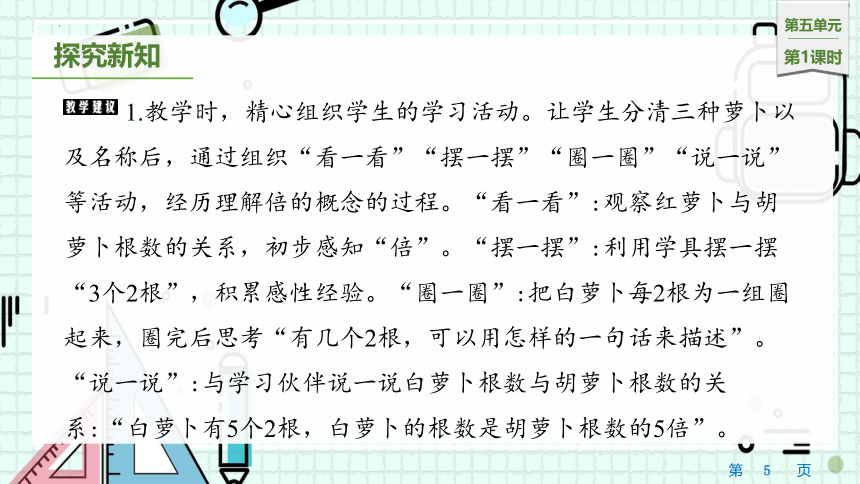 第五单元
第1课时
探究新知
教学建议 1.教学时，精心组织学生的学习活动。让学生分清三种萝卜以
及名称后，通过组织“看一看”“摆一摆”“圈一圈”“说一说”
等活动，经历理解倍的概念的过程。“看一看”:观察红萝卜与胡
萝卜根数的关系，初步感知“倍”。“摆一摆”:利用学具摆一摆
“3个2根”，积累感性经验。“圈一圈”:把白萝卜每2根为一组圈
起来，圈完后思考“有几个2根，可以用怎样的一句话来描述”。
“说一说”:与学习伙伴说一说白萝卜根数与胡萝卜根数的关
系:“白萝卜有5个2根，白萝卜的根数是胡萝卜根数的5倍”。
第 5 页